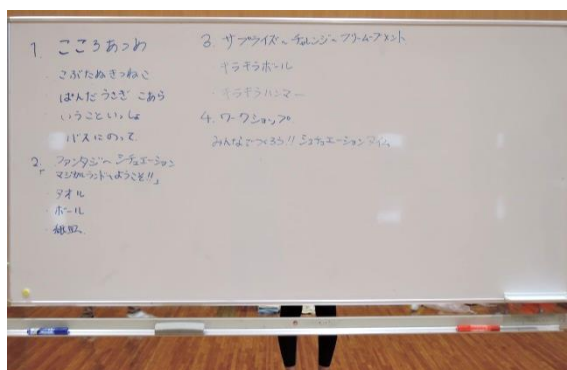 1. こころあつめ
・こぶたぬきつねこ
ぱんだうさぎこあら
いうこといっしょ
バスにのって
2. ファンタジ〜シチュエーション
マジカルランドへようこそ!!」
・タオル
・ボール
・紙皿
3. サプライズ〜チャレンジ〜フリームーブメント
・キラキラボール
・キラキラハンマー
4. ワークショップ
みんなでつくろう!! シチュエーションマイム